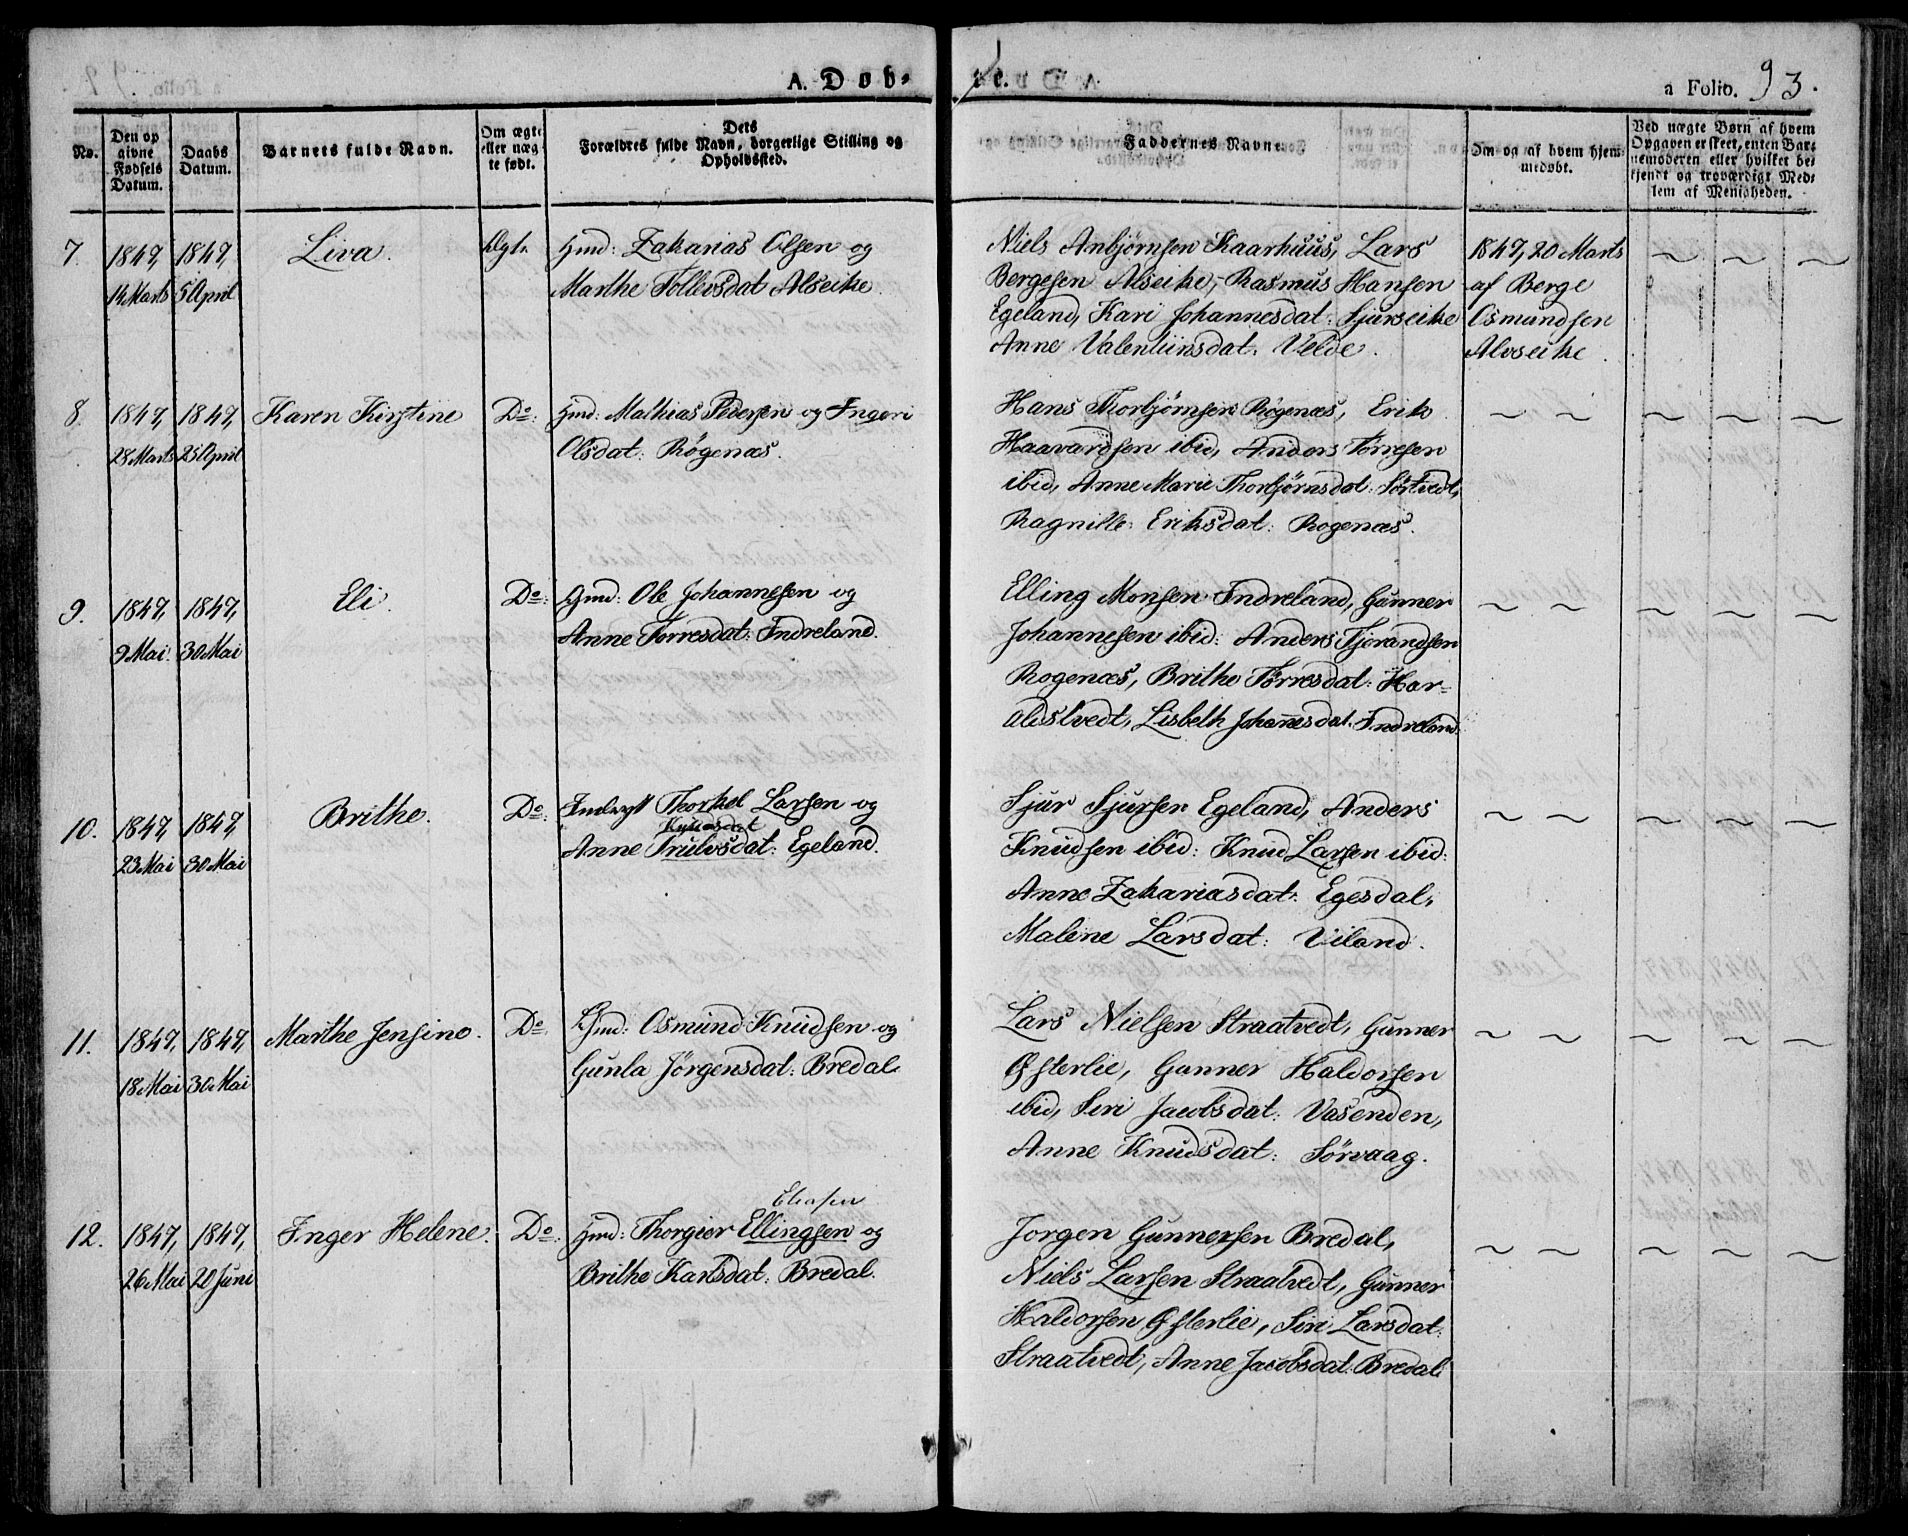 A. Døb-
te.
a Folio. 93.
No.
Den op
givne
Fødsels
Datum.
Daabs
Datum.
Barnets fulde Navn.
Om ægte
eller næg
te født.
Dets
Forældres fulde Navn, borgerlige Stilling og
Opholdssted.
Faddernes Navne.
Om og af hvem hjem-
medøbt.
Ved nægte Børn af hvem
Opgaven er skeet, enten Bar-
nemoderen eller hvilket be-
kjendt og troværdigt Med-
lem af Menigheden.
7. 1847, 1847, Liva. Ægte Gmd: Zakarias Olsen og
14 Marts 5 April Marthe Tollevsdat Alseike.
Niels Anbjørnsen Kaarhuus, Lars
Bergesen Alseike, Rasmus Hansen
Egeland, Kari Johannesdat: Sjurseike
Anne Valentinsdat. Velde.
1847, 20 Marts
af Berge
Osmundsen
Alvseike.
8. 1847, 1847, Karen Kirstine Do: Gmd: Mathias Pedersen og Ingeri
28 Marts 25 April Olsdat: Røgenæs.
Hans Thorbjørnsen Røgenæs, Erik
Haavardsen ibid, Anders Tørresen
ibid, Anne Marie Thorbjørnsdat: Sørtvedt,
Ragnille: Eriksdat: Rogenæs.
9. 1847, 1847, Eli. Do: Gmd: Ole Johannesen og
9 Mai. 30 Mai Anne Torresdat: Indreland.
Elling Monsen Indreland, Gunner
Johannesen ibid: Anders Tjorandsen
Rogenæs, Brithe Tørresdat: Har-
aldstvedt, Lisbeth Johanesdat. Indreland.
10. 1847, 1847, Brithe. Do: Inderst Thorkel Larsen og
23 Mai 30 Mai Anne Trulvsdat: Egeland.
Sjur Sjursen Egeland, Anders
Knudsen ibid: Knud Larsen ibid:
Anne Zakariasdat: Egesdal,
Malene Larsdat: Viland.
11. 1847, 1847, Marthe Jensine. Do. Gmd: Osmund Knudsen og
18 Mai 30 Mai Gunla Jørgensdat: Bredal.
Lars Nielsen Straatvedt, Gunner
Østerlie, Gunner Haldorsen
ibid, Siri Jacobsdat: Vasenden,
Anne Knudsdat: Sørvaag.
Eliasen
12. 1847, 1847, Inger Helene. Do. Gmd: Thorgier Ellingsen og
26 Mai 20 Juni Brithe Karlsdat: Bredal.
Jorgen Gunnersen Bredal,
Niels Larsen Straatvedt, Gunner
Haldorsen Østerlie, Siri Larsdat:
Straatvedt, Anne Jacobsdat: Bredal.